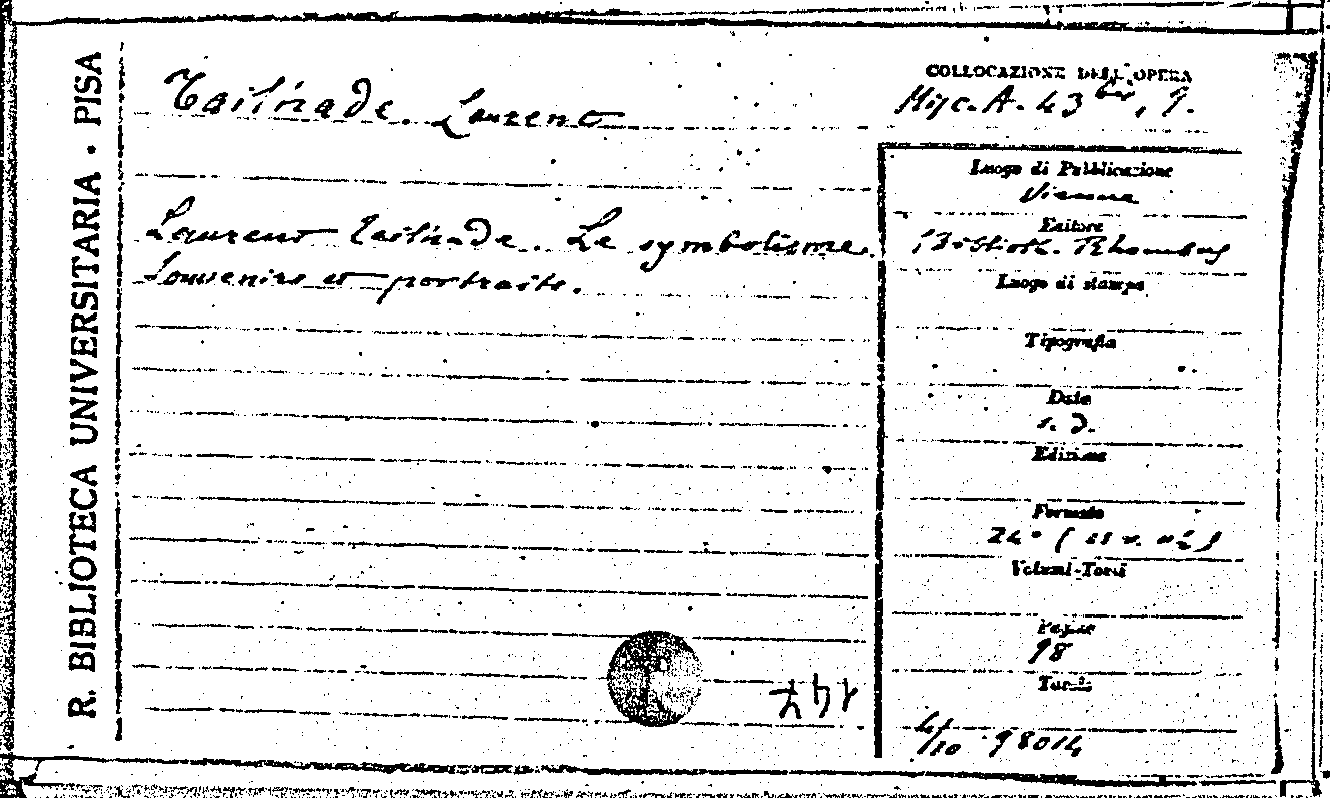 R. BIBLIOTECA UNIVERSITARIA · PISA
Tailhade. Laurent
Laurent Tailhade. Le symbolisme.
Souvenirs et portraits.
COLLOCAZIONE DELL'OPERA
Misc. A. 43 bis, 9.
Luogo di Pubblicazione
Vienne
Editore
Biblioth. Rhombus
Luogo di stampa
Tipografia
Data
s. d.
Edizione
Formato
24°
Volumi-Tomi
Pagine
98
Tavole
98014